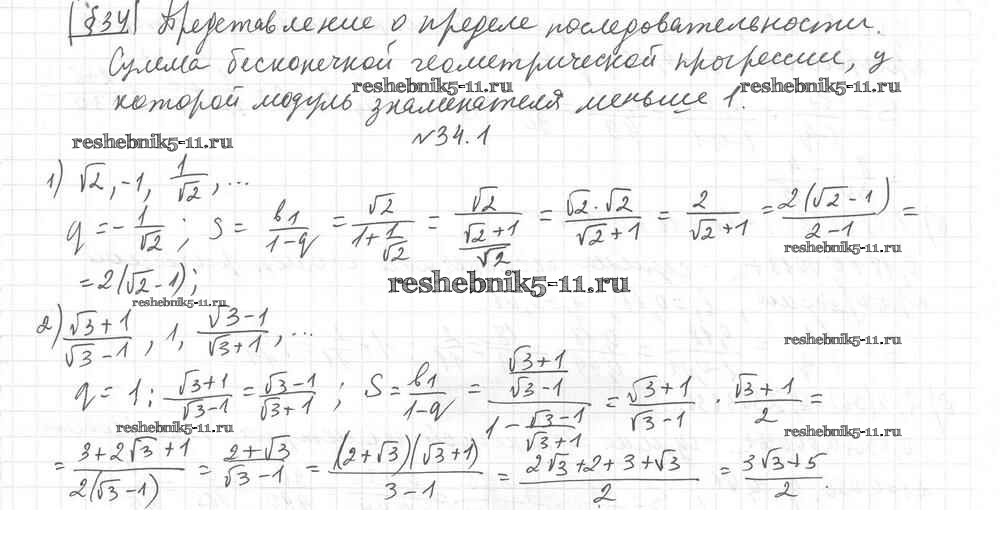 §34 Представление о пределе последовательности.
Сумма бесконечной геометрической прогрессии, у
reshebnik5-11.ru
которой модуль знаменателя меньше 1.
reshebnik5-11.ru
№34.1
1) √2, -1, 1/√2, ...
q = -1/√2; S = b1/(1-q) = √2/(1+1/√2) = √2/((√2+1)/√2) = (√2·√2)/(√2+1) = 2/(√2+1) = 2(√2-1)/(2-1) =
reshebnik5-11.ru
= 2(√2-1);
reshebnik5-11.ru
reshebnik5-11.ru
2) (√3+1)/(√3-1), 1, (√3-1)/(√3+1), ...
reshebnik5-11.ru
q = 1 : (√3+1)/(√3-1) = (√3-1)/(√3+1); S = b1/(1-q) = ((√3+1)/(√3-1))/(1-(√3-1)/(√3+1)) = (√3+1)/(√3-1) · (√3+1)/2 =
reshebnik5-11.ru
reshebnik5-11.ru
= (3+2√3+1)/(2(√3-1)) = (2+√3)/(√3-1) = (2+√3)(√3+1)/(3-1) = (2√3+2+3+√3)/2 = (3√3+5)/2.